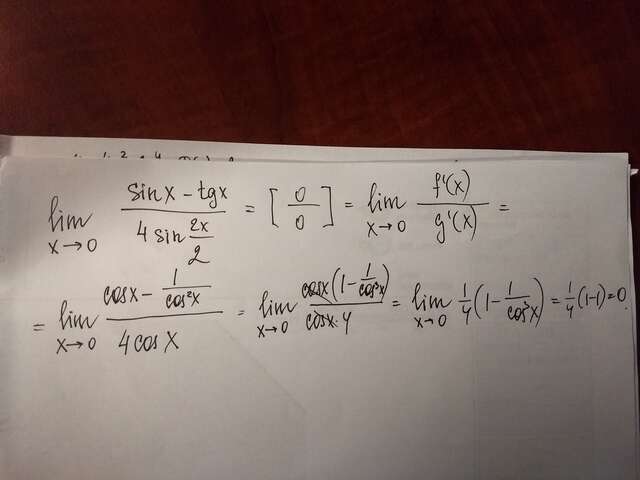 lim x→0 (sin x − tg x)/(4 sin 2x/2) = [0/0] = lim x→0 f'(x)/g'(x) =
= lim x→0 (cos x − 1/cos²x)/(4 cos x) = lim x→0 (cos x (1 − 1/cos³x))/(cos x · 4) = lim x→0 1/4 (1 − 1/cos³x) = 1/4 (1−1) = 0.